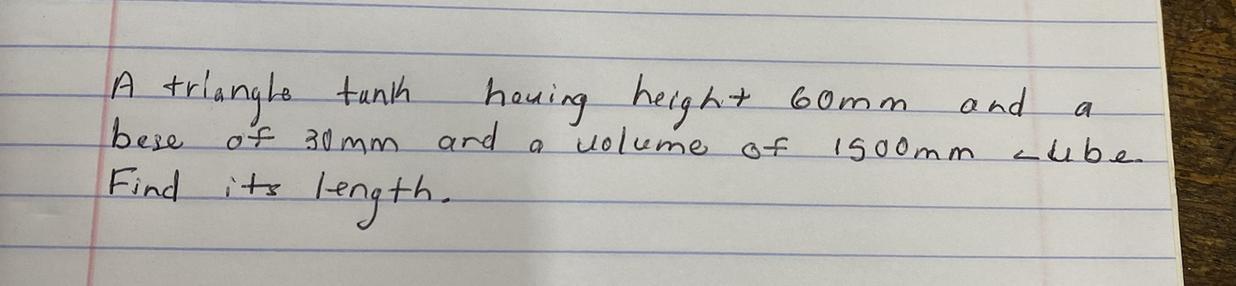 A triangle tank having height 60mm and a
base of 30mm and a volume of 1500mm cube.
Find its length.